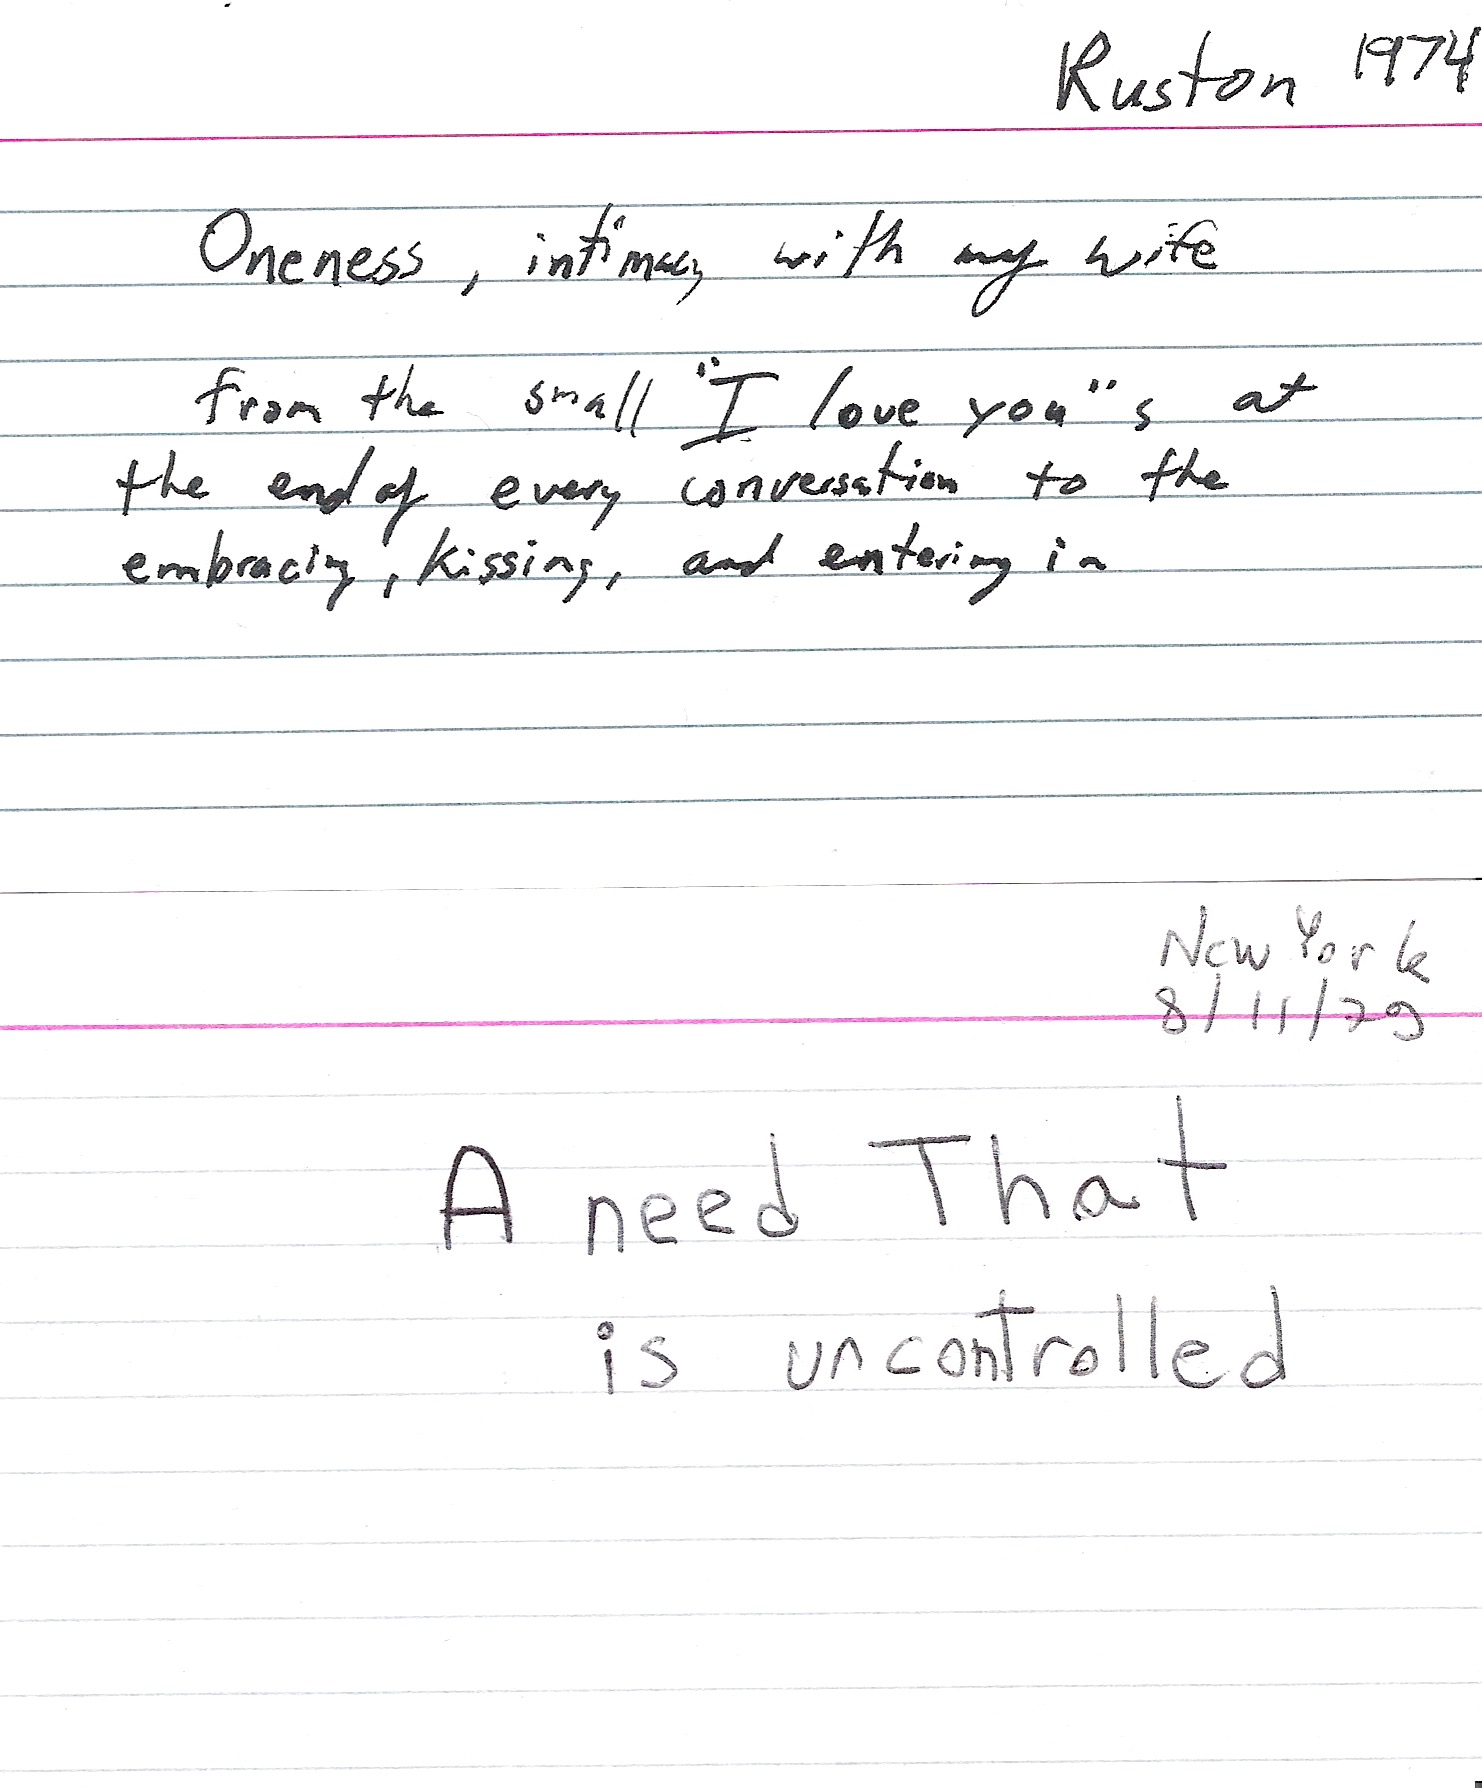 Ruston 1974
Oneness, intimacy with my wife
from the small "I love you"s at
the end of every conversation to the
embracing, kissing, and entering in
New York
8/11/79
A need That
is uncontrolled